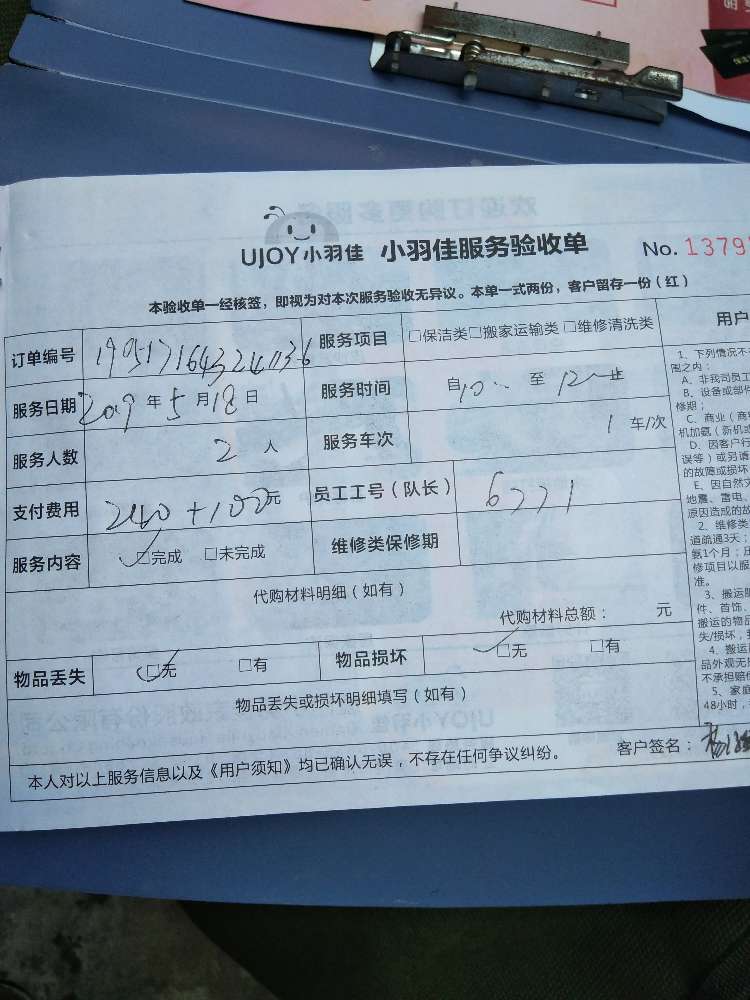 UJOY小羽佳 小羽佳服务验收单 No. 1379
本验收单一经核签，即视为对本次服务验收无异议。本单一式两份，客户留存一份（红）
订单编号 服务项目 □保洁类□搬家运输类□维修清洗类
服务日期 2019年5月18日 服务时间 自10 至12 止
服务人数 2人 服务车次 1车/次
支付费用 240+100元 员工工号（队长） 6771
服务内容 ✓□完成 □未完成 维修类保修期
代购材料明细（如有）
代购材料总额： 元
物品丢失 ✓□无 □有 物品损坏 ✓□无 □有
物品丢失或损坏明细填写（如有）
本人对以上服务信息以及《用户须知》均已确认无误，不存在任何争议纠纷。 客户签名：
用户
1、下列情况不
围之内：
A、非我司员工
B、设备或部件
修期；
C、商业（商
机加氨（新机或
D、因客户行
误等）或另请
的故障或损坏
E、因自然灾
地震、雷电、
原因造成的故
2、维修类
道疏通3天；
氨1个月；
修项目以服
准。
3、搬运服
件、首饰、
搬运的物品
失/损坏，
4、搬运
品外观无损
不承担赔偿
5、家庭
48小时，